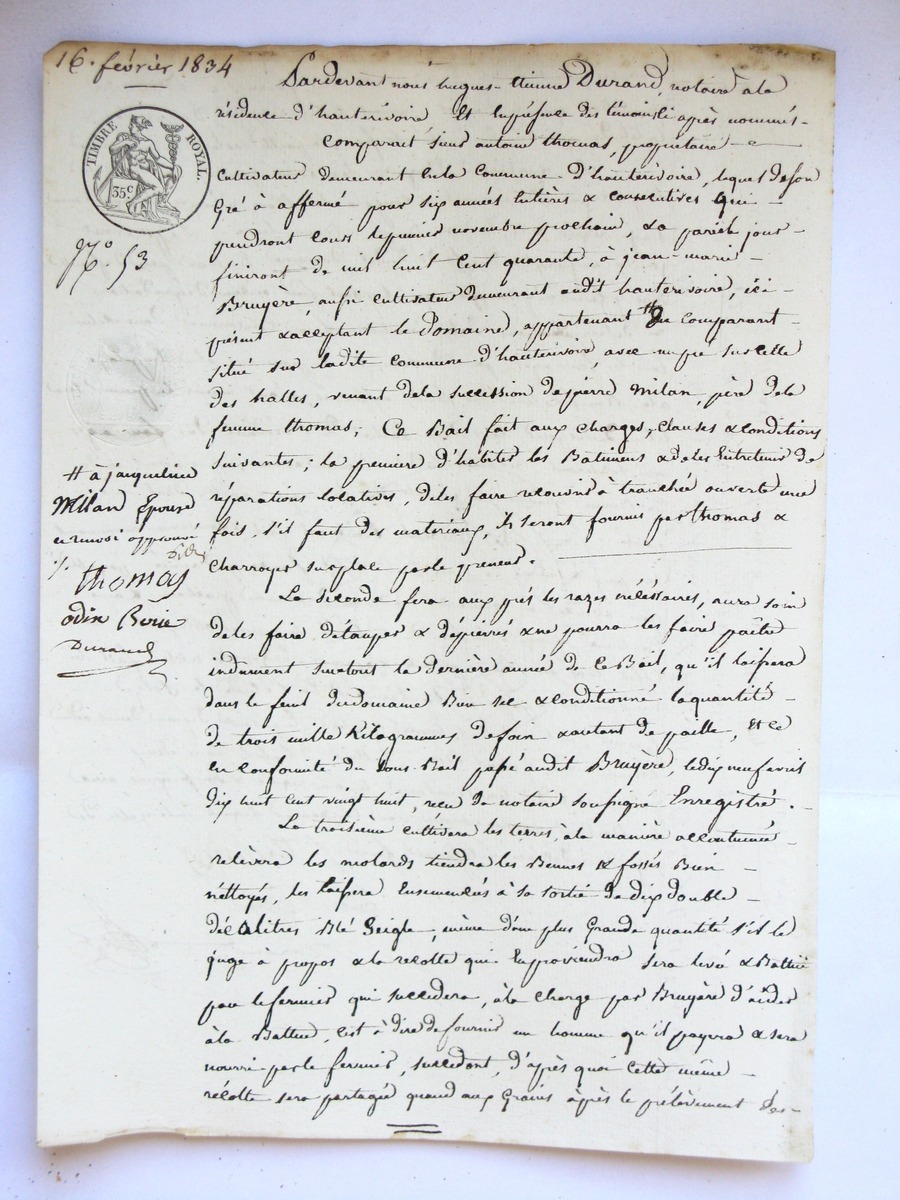 16. février 1834
TIMBRE ROYAL.
35c
No. 53
Pardevant nous hugues-étienne Durand, notaire à la
résidence d'hauterivoire Et En présence des témoins ci après nommés -
Comparait sieur antoine thomas, propriétaire
Cultivateur demeurant En la Commune d'hauterivoire, lequel de son
Gré à affermé pour six années Entières & consécutives qui -
prendront cours le premier novembre prochain, & a pareil jour -
finiront de mil huit cent quarante, à jean-marie -
Bruyère, aussi cultivateur demeurant audit hauterivoire, ici -
présent & acceptant le Domaine, appartenant # au Comparant -
situé sur ladite commune d'hauterivoire, avec un pré sur celle
des halles, venant de la succession de pierre milan, père de la
femme thomas; Ce Bail fait aux charges, Clauses & Conditions
Suivantes; la première d'habiter les Bâtimens & de les Entretenir de
réparations locatives, de les faire recouvrir à tranchée ouverte une
fois, s'il faut des matériaux, ils seront fournis par thomas &
Charroyés sur place par le preneur.
# à jacqueline
Milan Epouse
en renvoi approuvé
./.
thomas
odin Berie
Durand
La seconde fera aux prés les razes nécéssaires, aura soin
de les faire détauper & dépierrer & ne pourra les faire paître
indument surtout la dernière année de Ce Bail, qu'il laissera
dans le fenil du domaine Bien sec & conditionné la quantité -
de trois mille Kilogrammes de foin & autant de paille, Et ce
En conformité du sous-Bail passé audit Bruyère, le dix neuf avril
dix huit cent vingt huit, reçu du notaire soussigné Enregistré.
La troisième cultivera les terres, à la manière accoutumée
relèvera les molards tiendra les Bennes & fossés Bien -
néttoyés, les laissera Ensemencés à sa sortie de dix double -
décalitres Blé Seigle, même d'une plus Grande quantité s'il le
juge à propos & la récolte qui En proviendra sera levée & Battue
par le fermier qui succèdera, à la charge par Bruyère d'aider
à la Battue, c'est à dire de fournir un homme qu'il payera & sera
nourri par le fermier, succédant, d'après quoi Cette même -
récolte sera partagée quand aux Grains après le prélèvement des -